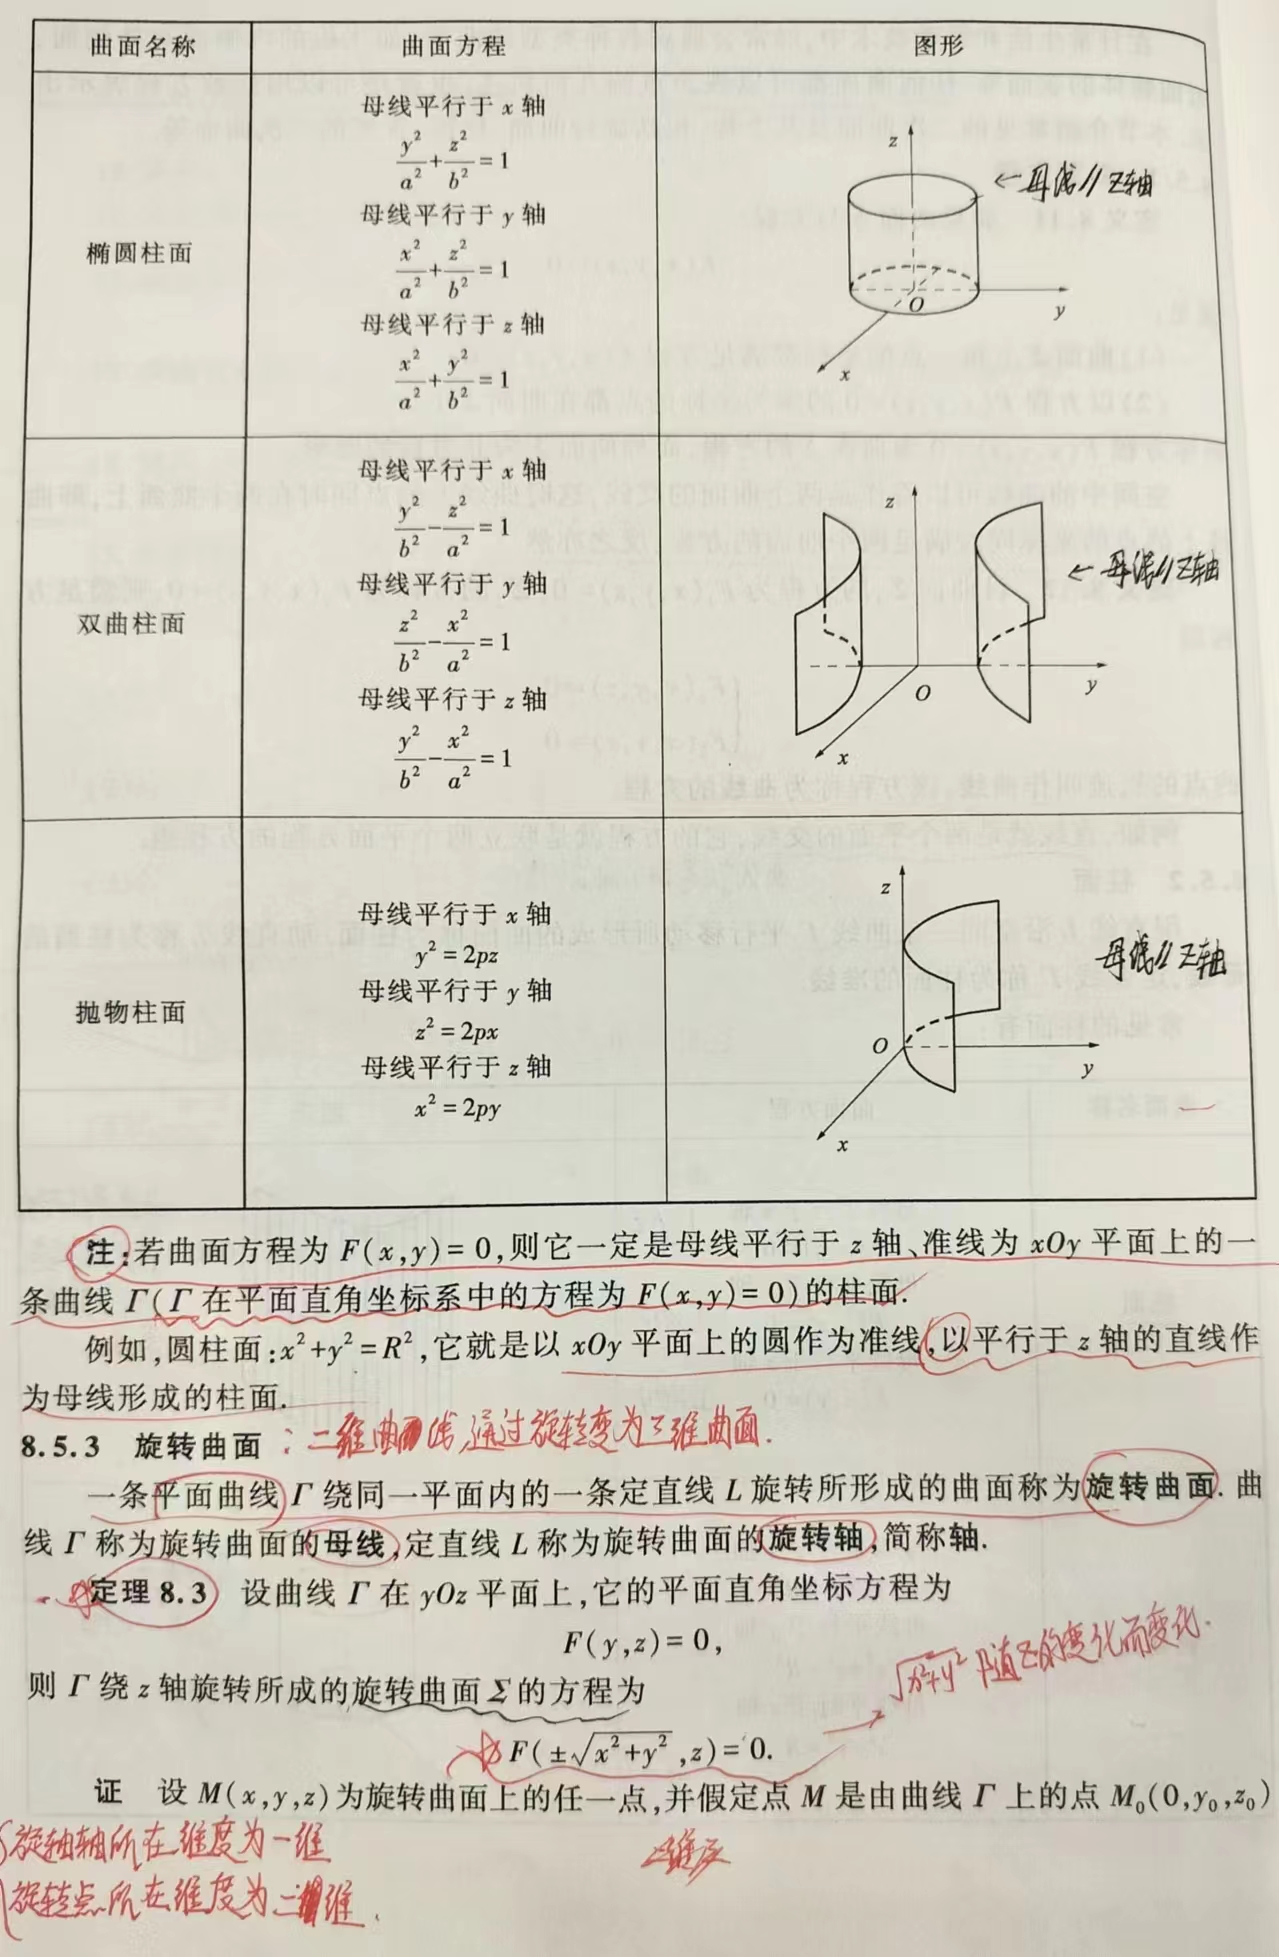 曲面名称 曲面方程 图形
椭圆柱面
母线平行于 x 轴
y²/a² + z²/b² = 1
母线平行于 y 轴
x²/a² + z²/b² = 1
母线平行于 z 轴
x²/a² + y²/b² = 1
z
←母线∥Z轴
O
y
x
双曲柱面
母线平行于 x 轴
y²/b² − z²/a² = 1
母线平行于 y 轴
z²/b² − x²/a² = 1
母线平行于 z 轴
y²/b² − x²/a² = 1
z
←母线∥Z轴
O
y
x
抛物柱面
母线平行于 x 轴
y² = 2pz
母线平行于 y 轴
z² = 2px
母线平行于 z 轴
x² = 2py
z
母线∥Z轴
O
y
x
注:若曲面方程为 F(x,y)=0,则它一定是母线平行于 z 轴、准线为 xOy 平面上的一
条曲线 Γ(Γ 在平面直角坐标系中的方程为 F(x,y)=0)的柱面.
例如,圆柱面:x²+y²=R²,它就是以 xOy 平面上的圆作为准线,以平行于 z 轴的直线作
为母线形成的柱面.
8.5.3 旋转曲面 :二维曲线,通过旋转变为三维曲面.
一条平面曲线 Γ 绕同一平面内的一条定直线 L 旋转所形成的曲面称为旋转曲面. 曲
线 Γ 称为旋转曲面的母线,定直线 L 称为旋转曲面的旋转轴,简称轴.
定理 8.3 设曲线 Γ 在 yOz 平面上,它的平面直角坐标方程为
F(y,z)=0,
√x²+y² 随Z的变化而变化.
则 Γ 绕 z 轴旋转所成的旋转曲面 Σ 的方程为
F(±√x²+y²,z)=0.
证 设 M(x,y,z)为旋转曲面上的任一点,并假定点 M 是由曲线 Γ 上的点 M₀(0,y₀,z₀)
旋轴轴所在维度为一维
旋转点所在维度为二维.